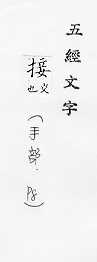 五經文字
接
也义
（手部．P8）